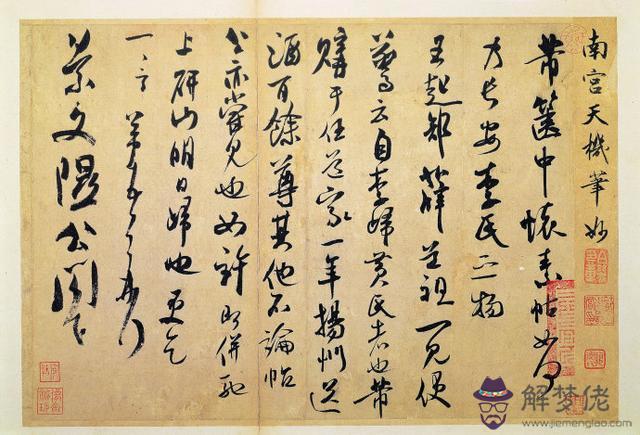 南宮天機筆妙
芾篋中懷素帖如何
乃長安李氏之物
王起部薛道祖一見便
驚云自李歸黃氏者也芾
購于任道家一年揚州送
酒百餘尊其他不論帖
公亦嘗見也如許即併馳
上研山明日歸也更乞
一言芾頓首再拜
景文隰公閣下
解梦佬
www.jiemenglao.com